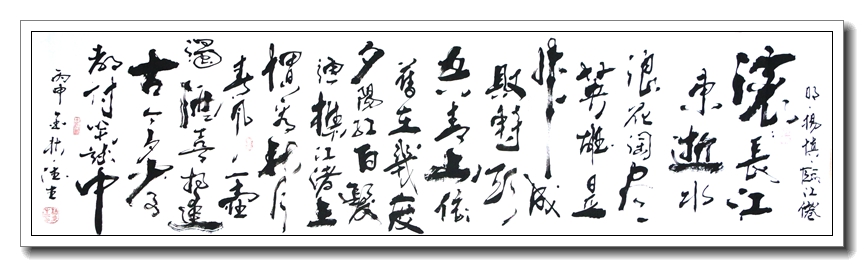 明楊慎臨江僊
滚滚長江
東逝水
浪花淘尽
英雄是
非成
敗轉頭
空青山依
舊在幾度
夕陽紅白髮
漁樵江渚上
慣看秋月
春風一壺
濁酒喜相逢
古今多少事
都付笑談中
丙申金秋